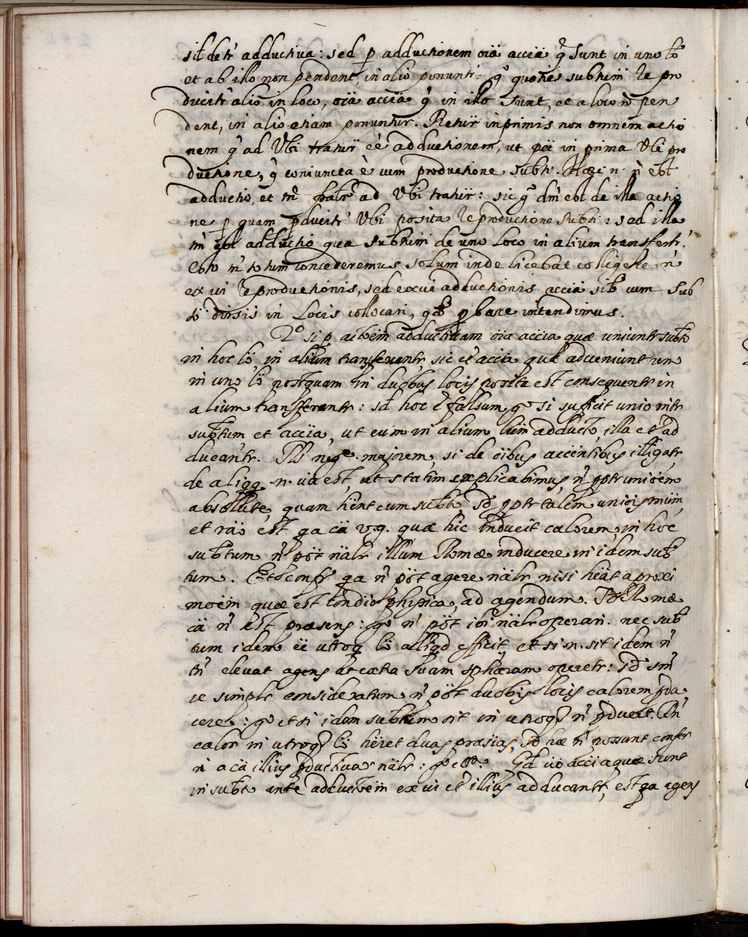 sit detr adductiva: sed p adductionem oïa accïa q̃ sunt in uno lõ
et ab illo non pendent, in alio ponuntr: gº quoties subtum re pro
ducitr alio in loco, oïa accïa q̃ in illo sunt, et a loco ñ pen
dent, in alio etiam ponuntur. Retur inprimis non omnem actio
nem q̃ ad Ubi tratur eē adductionem, ut pat in prima Ubi pro
ductione, q̃ coniuncta ē cum productione subti. Hæc n. ñ est
adductio, et tñ ad Ubi tratur: sic gº de illa actio
ne p quam pducitr Ubi posita reproductione subti: sed illa
tñ est adductio qua subtum de uno loco in alium transfertr.
ñ totum concederemus solum inde licebat colligere ñ
ex vi reproductionis, sed ex vi adductionis accïa sib cum sub
to divsis in locis collocari, qd pbare intendimus.
2º si p actõem adductivam oïa accïa quæ uniuntr subto
in hoc lõ in alium transferentr sic et accïa quæ adveniunt
in uno lõ postquam in duobus locis posita est consequentr in
alium transferentr: sd hoc ē falsum, gº si sufficit unio intr
subtum et accïa, ut cum in alium adducto, illa et ad
ducantr. Rs negº majorem, si de oïbus accentibus illigatr,
de aliqq n. va est, ut statim explicabimus, ñ pptr unioem
absolute, quam hent cum subto sd pptr talem unionis
et raõ est, qa cä v.g. quæ hic inducit calorem in hoc
subtum ñ põt nalr illum Romæ inducere in idem sub
tum. Et confr qa ñ põt agere nalr nisi heat aproxi
moem quæ est condio phisica, ad agendum. Sd Romæ
cä ñ est præsens: gº ñ põt ioi nalr operari. nec sub
tum idem eē utroq lõ aliqd efficit, et si n. sit idem ñ
tñ elevat agens ut extra suam sphæram operetr: sd
ce simplr consideratum ñ põt duobis locis calorem pdu
cere: gº etsi idem subtum sit in utroq ñ pducet. An
calor in utroq lõ heret duas præsias, sd hæ ñ possunt
ñ a cä illius pductiva nalr: gº etc. Qd vº accïa quæ sunt
in subto ante adductoem ex vi et illius adducantr, est qa agens